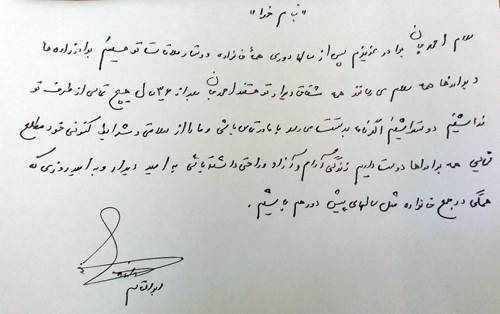 "بنام خدا"
سلام احمد جان برادر عزیزم پس از سالها دوری همهٔ خانواده دوستدار ملاقات تو هستیم برادرزاده ها
و برادرها همه سلام می رسانند همه مشتاق دیدار تو هستند احمد جان بعد از ۳۶ سال هیچ تماسی از طرف تو
نداشتیم دوست داشتیم اگر نامه بدستت می رسد با ما در تماس باشی و ما را از سلامتی و شرایط کنونی خود مطلع
نمائی همه برادرها دوست داریم زندگی آرام و آزاد و راحتی داشته باشی به امید دیدار و به امید روزی که
همگی در جمع خانواده مثل سالهای پیش دور هم باشیم.
ابوالقاسم